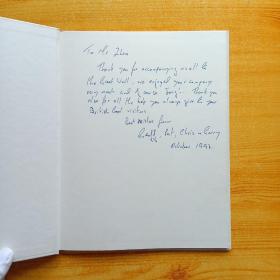 To Mr Zhou
Thank you for accompanying us all to
the Great Wall, we enjoyed your company
very much and of course Tony's. Thank you
also for all the help you always give to your
British Coal visitors
Best wishes from
Geoff, Pat, Chris &
October 1992